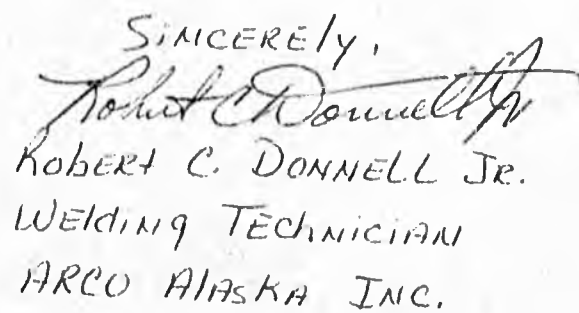 SINCERELY,
Robert C Donnell Jr
ROBERT C. DONNELL JR.
WELDING TECHNICIAN
ARCO ALASKA INC.